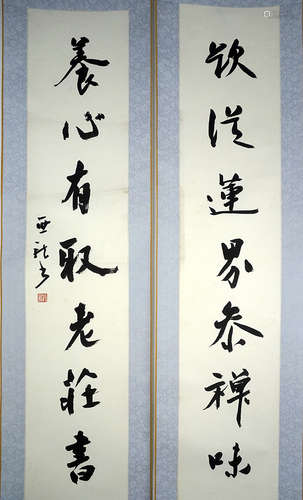 欲從蓮界參禪味
養心有取老莊書